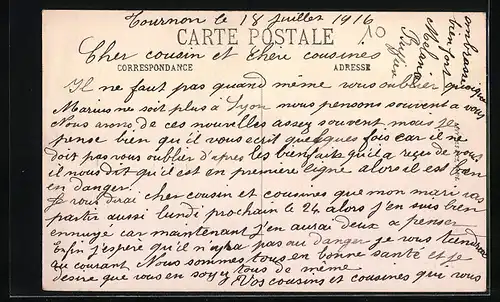 Tournon le 18 juillet 1916
CARTE POSTALE
10
Cher cousin et chere cousines
CORRESPONDANCE
ADRESSE
Il ne faut pas quand même vous oublier quoique
Marius ne soit plus à Lyon nous pensons souvent a vous
Nous avons de ces nouvelles assez souvent mais je
pense bien qu'il vous ecrit quelques fois car il ne
doit pas vous oublier d'apres les bienfaits qu'il a reçu de vous
il nous dit qu'il est en premiere ligne alors il est bien
en danger.
Je vous dirai cher cousin et cousines que mon mari vas
partir aussi lundi prochain le 24 alors j'en suis bien
ennuyé car maintenant j'en aurai deux a penser
Enfin j'espere qu'il n'y aura pas au danger je vous tiendrai
au courant Nous sommes tous en bonne santé et je
desire que vous en soyez tous de même
Vos cousins et cousines qui vous
embrasse
bien fort
Melanie